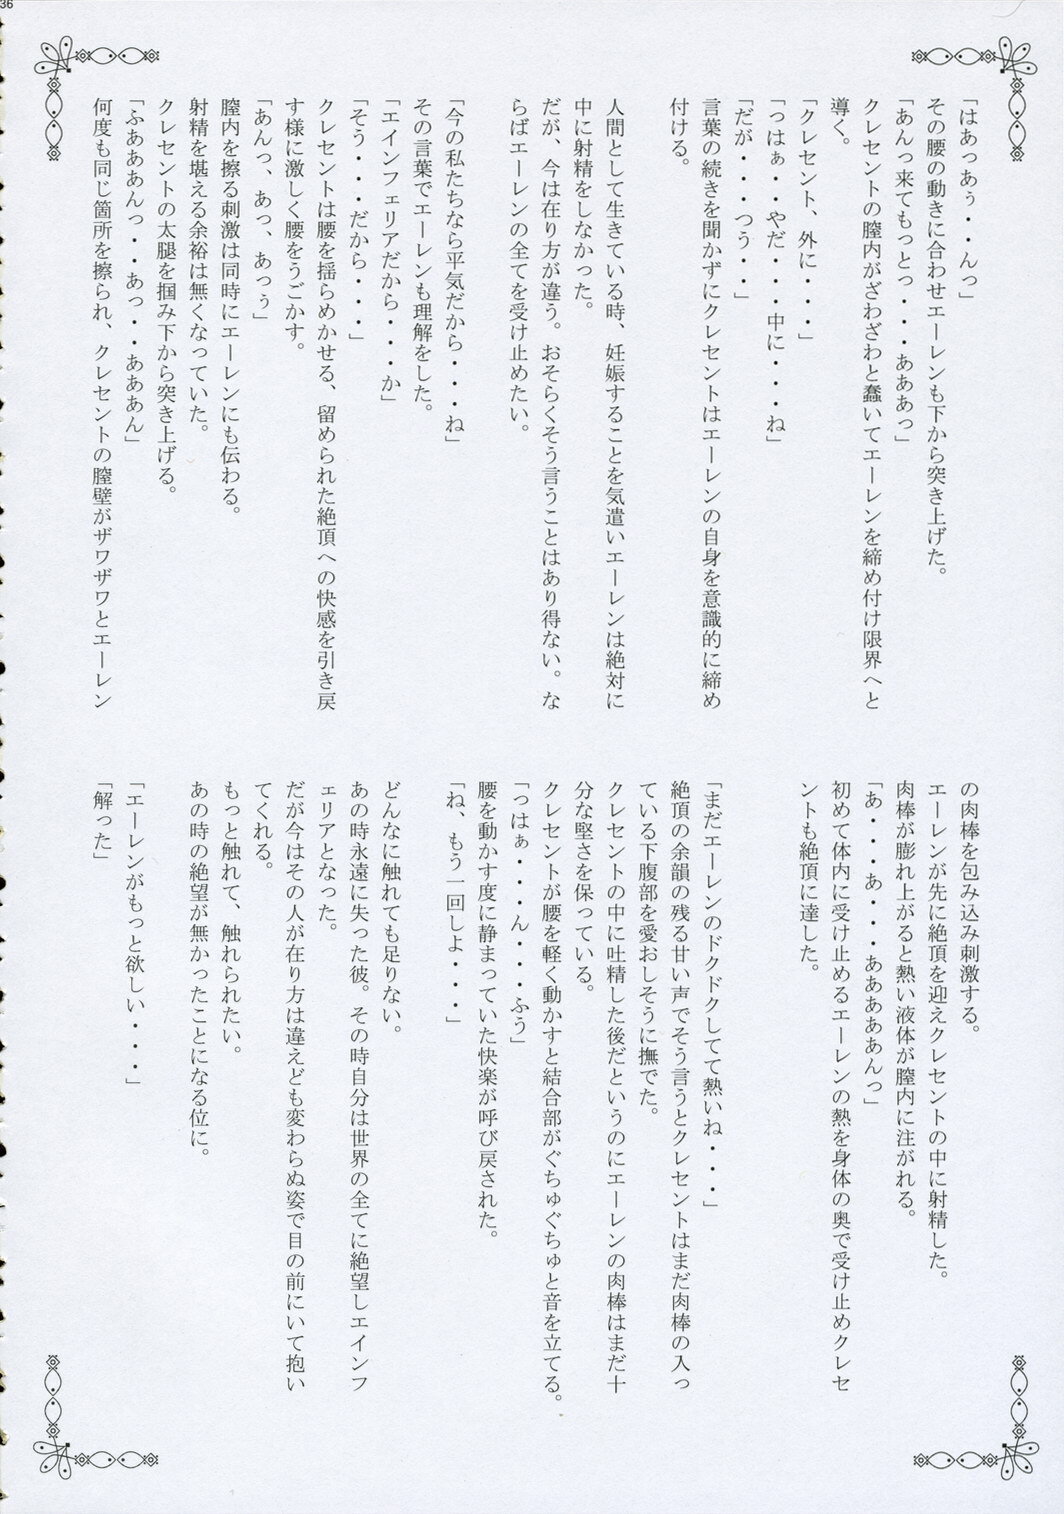 36
「はあっあぅ・・んっ」
その腰の動きに合わせエーレンも下から突き上げた。
「あんっ来てもっとっ・・・あああっ」
クレセントの膣内がざわざわと蠢いてエーレンを締め付け限界へと
導く。
「クレセント、外に・・・」
「っはぁ・・やだ・・・中に・・・ね」
「だが・・・つう・・」
言葉の続きを聞かずにクレセントはエーレンの自身を意識的に締め
付ける。
人間として生きている時、妊娠することを気遣いエーレンは絶対に
中に射精をしなかった。
だが、今は在り方が違う。おそらくそう言うことはあり得ない。な
らばエーレンの全てを受け止めたい。
「今の私たちなら平気だから・・・ね」
その言葉でエーレンも理解をした。
「エインフェリアだから・・・か」
「そう・・・だから・・・」
クレセントは腰を揺らめかせる、留められた絶頂への快感を引き戻
す様に激しく腰をうごかす。
「あんっ、あっ、あっぅ」
膣内を擦る刺激は同時にエーレンにも伝わる。
射精を堪える余裕は無くなっていた。
クレセントの太腿を掴み下から突き上げる。
「ふあああんっ・・あっ・・あああん」
何度も同じ箇所を擦られ、クレセントの膣壁がザワザワとエーレン
の肉棒を包み込み刺激する。
エーレンが先に絶頂を迎えクレセントの中に射精した。
肉棒が膨れ上がると熱い液体が膣内に注がれる。
「あ・・・あ・・・あああああんっ」
初めて体内に受け止めるエーレンの熱を身体の奥で受け止めクレセ
ントも絶頂に達した。
「まだエーレンのドクドクしてて熱いね・・・」
絶頂の余韻の残る甘い声でそう言うとクレセントはまだ肉棒の入っ
ている下腹部を愛おしそうに撫でた。
クレセントの中に吐精した後だというのにエーレンの肉棒はまだ十
分な堅さを保っている。
クレセントが腰を軽く動かすと結合部がぐちゅぐちゅと音を立てる。
「っはぁ・・・ん・・・ふう」
腰を動かす度に静まっていた快楽が呼び戻された。
「ね、もう一回しよ・・・」
どんなに触れても足りない。
あの時永遠に失った彼。その時自分は世界の全てに絶望しエインフ
ェリアとなった。
だが今はその人が在り方は違えども変わらぬ姿で目の前にいて抱い
てくれる。
もっと触れて、触れられたい。
あの時の絶望が無かったことになる位に。
「エーレンがもっと欲しい・・・」
「解った」